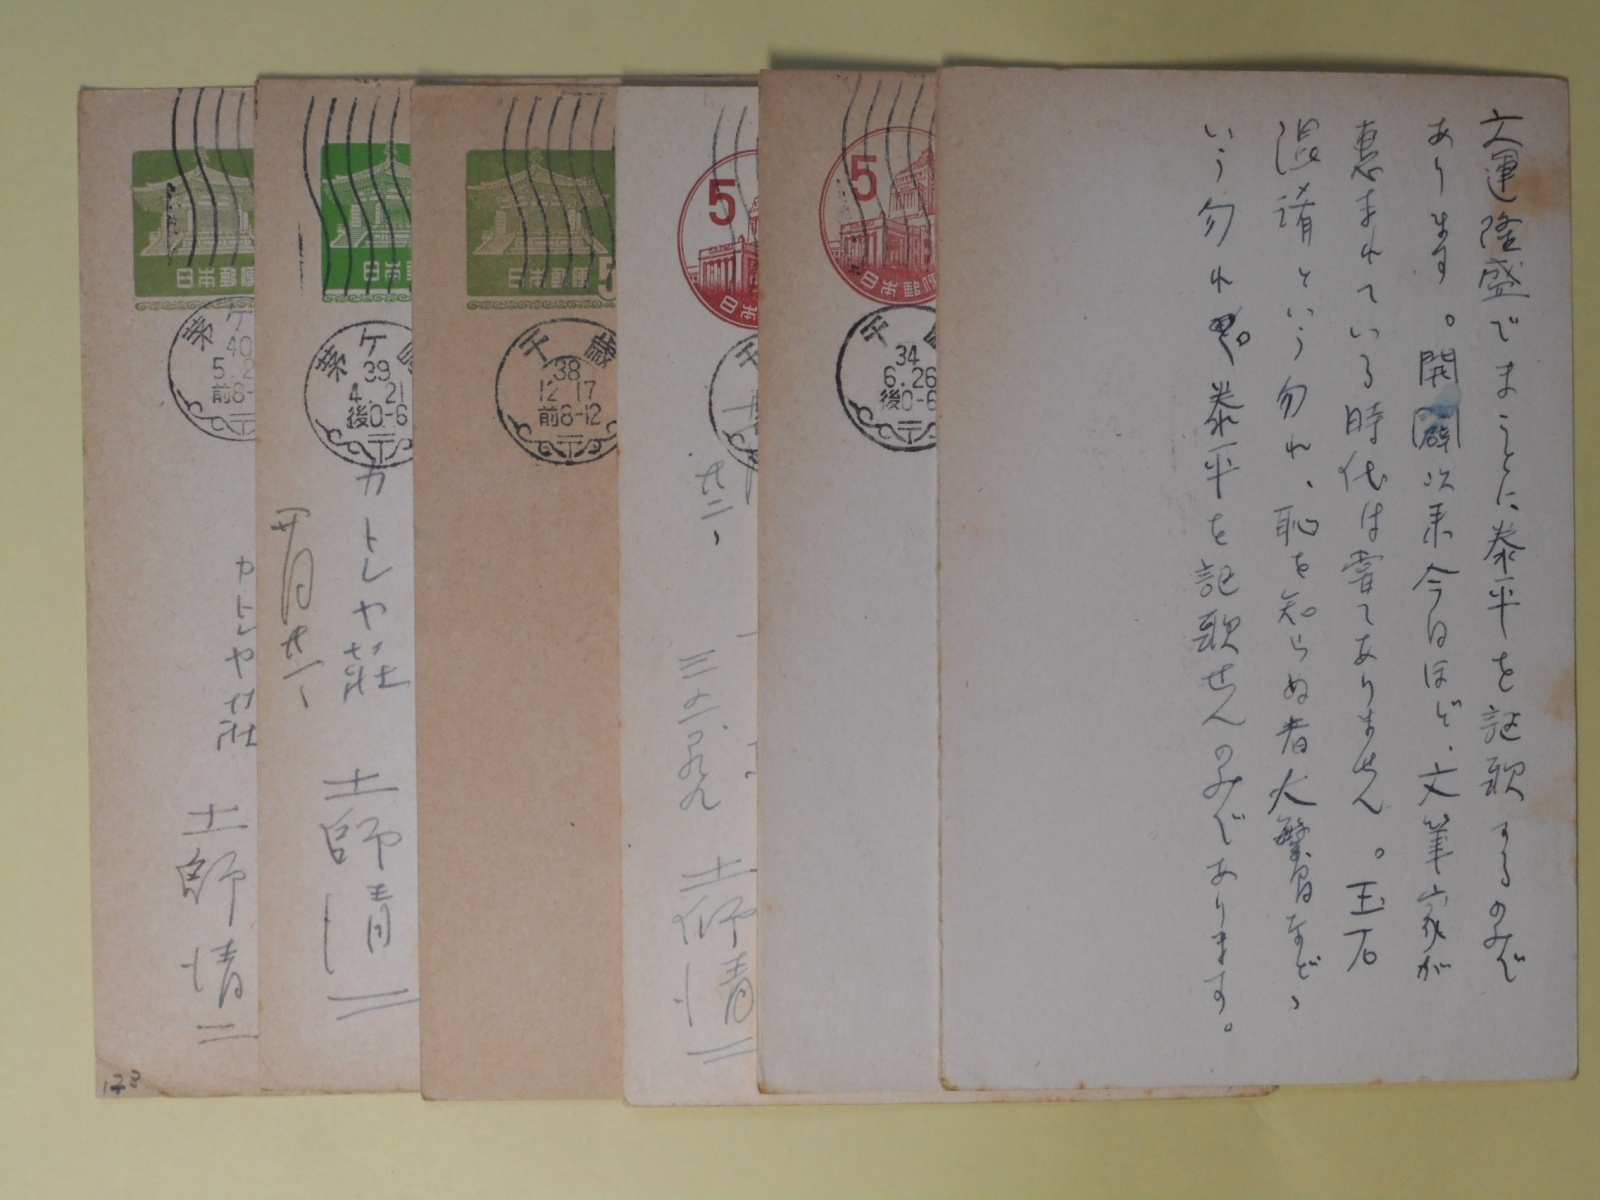 文運隆盛でまことに泰平を謳歌するのみで
あります。開闢次来今日ほど、文筆家が
恵まれている時代は嘗てありません。玉石
混淆という勿れ、恥を知らぬ者大繁昌などゝ
いう勿れ。泰平を謳歌せんのみであります。
5
日本郵便
34
6.26
後0-6
千
5
日本
千
廿二、
土師清二
日本郵便
5
千歳
38
12.17
前8-12
日本郵
茅ケ崎
39
4.21
後0-6
カトレヤ荘
土師清二
四月廿一、
日本郵便
茅ケ
40
5.2
前8-
カトレヤ荘
土師清二
128